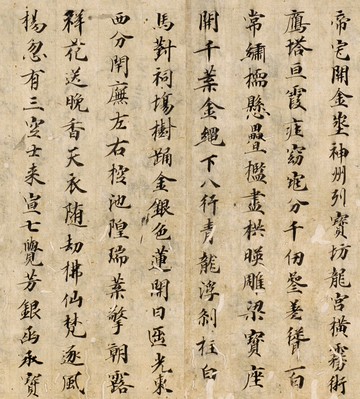 帝宅開金埊神州列寶坊龍宮橫霧術
鴈塔亘霞庄窈窕分千仞參差聳百
常繡栭懸疊檻畫栱暎雕梁寶座
開千葉金繩下八行青龍浮刹柱白
馬對祠場樹踊金銀色蓮開日匿光東
西分閈廡左右控池隍瑞葉擎朝露
祥花送晚香天衣随劫拂仙梵逐風
楊忽有三空士来宣七覺芳銀函承寳